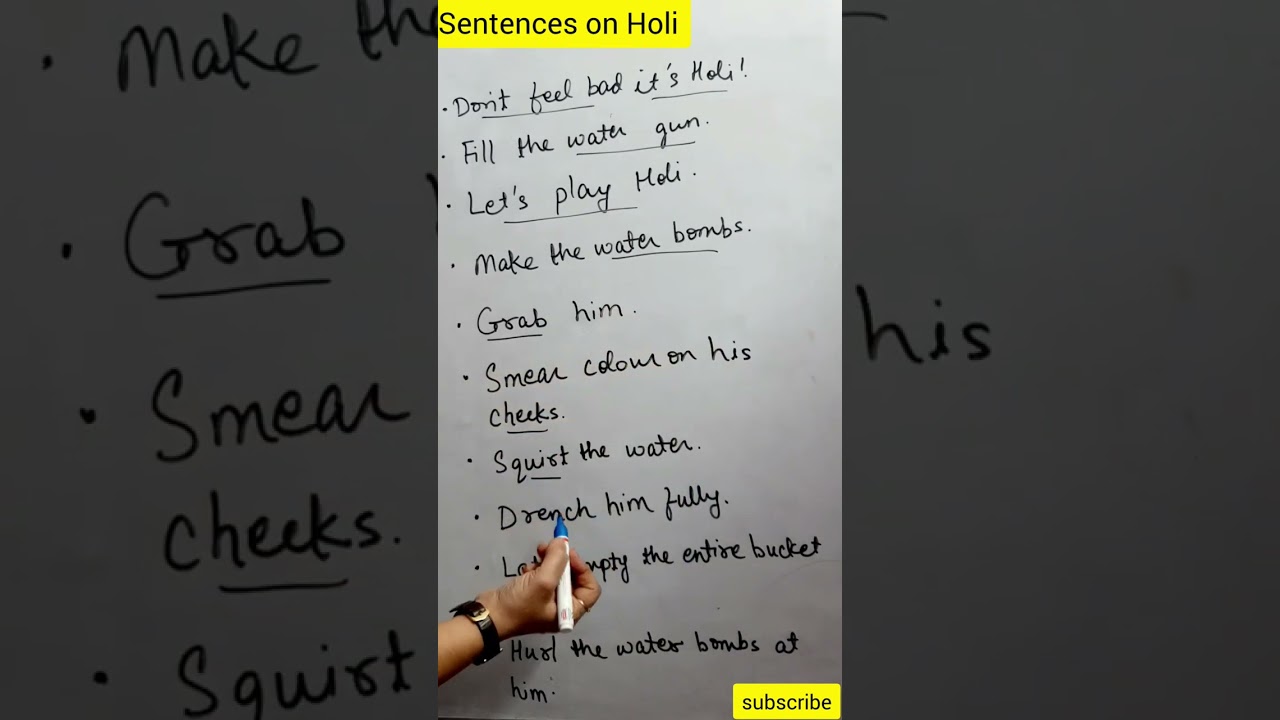 Sentences on Holi
. Don't feel bad it's Holi!
. Fill the water gun.
. Let's play Holi.
. Make the water bombs.
. Grab him.
. Smear colour on his
cheeks.
. Squirt the water.
. Drench him fully.
. the entire bucket
Hurl the water bombs at
him.
subscribe
. Make the
. Grab
. Smear
his
cheeks.
. Squirt